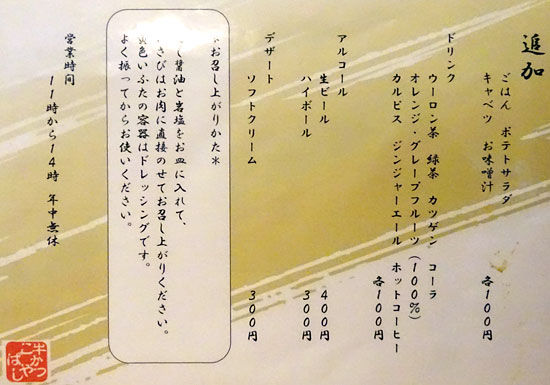 追加
ごはん ポテトサラダ
キャベツ お味噌汁
各100円
ドリンク
ウーロン茶 緑茶 カツゲン コーラ
オレンジ・グレープフルーツ(100%)
カルピス ジンジャーエール ホットコーヒー
各100円
アルコール
生ビール 400円
ハイボール 300円
デザート
ソフトクリーム 300円
お召し上がりかた※
し醤油と岩塩をお皿に入れて、
さびはお肉に直接のせてお召し上がりください。
黄色いふたの容器はドレッシングです。
よく振ってからお使いください。
営業時間
11時から14時 年中無休
牛かつ
こやばし